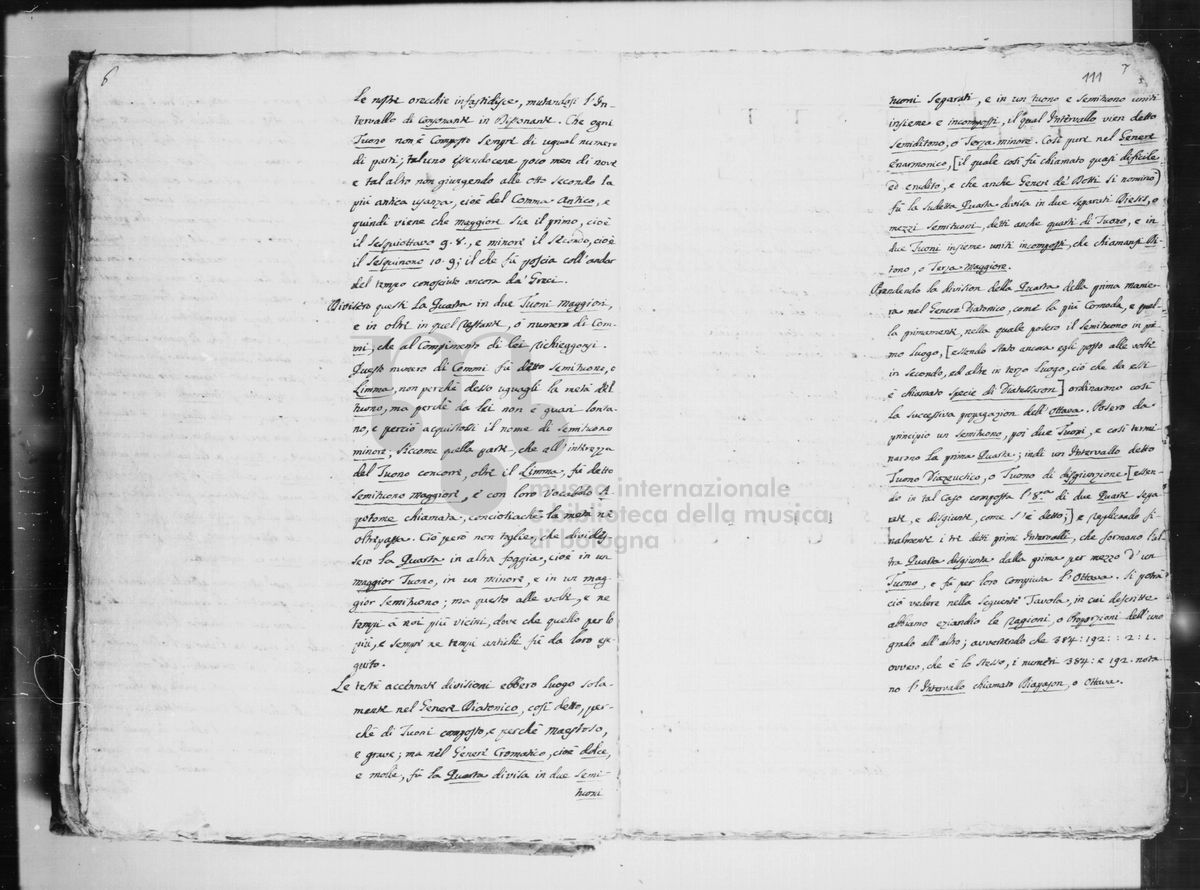 6
le nostre orecchie infastidisce, mutandosi l'In-
tervallo di Consonante in Dissonante. Che ogni
Tuono non è Composto sempre di ugual numero
di parti; taluno essendocene poco men di nove
e tal altro non giungendo alle otto secondo la
più antica usanza, cioè del Comma Antico, e
quindi viene che maggiore sia il primo, cioè
il Sesquiottavo 9. 8., e minore il Secondo, cioè
il Sesquinono 10. 9; il che fu poscia coll'andar
del tempo conosciuto ancora da' Greci.
Divisero questi la Quarta in due Tuoni Maggiori,
e in oltre in quel restante, o numero di Com-
mi, che al Compimento di lei richieggonsi.
Questo numero di Commi fu detto Semituono, o
Limma, non perchè desso uguagli la metà del
tuono, ma perchè da lei non è guari lonta-
no, e perciò acquistossi il nome di Semituono
minore, siccome quella parte, che all'interezza
del Tuono concorre, oltre il Limma, fu detto
Semituono maggiore, e con loro Vocabolo A-
potome chiamata, conciosiachè la metà ne
oltrepassa. Ciò però non toglie, che divides-
sero la Quarta in altra foggia, cioè in un
maggior Tuono, in un minore, e in un mag-
gior Semituono; ma questo alle volte, e ne
tempi à noi più vicini, dove che quello per lo
più, e sempre ne tempi antichi fu da loro ese-
guito.
Le testè accennate divisioni ebbero luogo sola-
mente nel Genere Diatonico, così detto, per-
chè di Tuoni composto, e perchè maestoso,
e grave; ma nel Genere Cromatico, cioè dolce,
e molle, fu la Quarta divisa in due Semi-
tuoni
111 7
tuoni separati, e in un tuono e Semituono uniti
insieme e incomposti, il qual Intervallo vien detto
Semiditono, o Terza minore. Così pure nel Genere
Enarmonico, [il quale così fu chiamato quasi difficile
ed erudito, e che anche Genere de' Dotti si nominò]
fu la sudetta Quarta divisa in due separati Diesis, o
mezzi Semituoni, detti anche quarti di Tuono, e in
due Tuoni insieme uniti incomposti, che chiamansi Di-
tono, o Terza Maggiore.
Prendendo la division della Quarta della prima manie-
ra nel Genere Diatonico, come la più Comoda, e quel-
la primamente, nella quale posero il Semituono in pri-
mo luogo, [essendo stato ancora egli posto alle volte
in secondo, ed altre in terzo luogo, ciò che da essi
è chiamato Specie di Diatessaron] ordinarono così
la successiva propagazion dell'ottava. Posero da
principio un Semituono, poi due Tuoni, e così termi-
narono la prima Quarta; indi un Intervallo detto
Tuono Diazeuctico, o Tuono di disgiunzione [essen-
do in tal Caso composta l'8.va di due Quarte sepa-
rate, e disgiunte, come s'è detto;] e replicando fi-
nalmente i tre detti primi Intervalli, che formano l'al-
tra Quarta disgiunta dalla prima per mezzo d'un
Tuono, e fu per loro Compiuta l'Ottava. Si potrà
ciò vedere nella seguente Tavola, in cui descritte
abbiamo eziandio le ragioni, o Proporzioni dell'uno
grado all'altro; avvertendo che 384: 192: : 2: 1.
ovvero, che è lo stesso, i numeri 384: e 192. nota-
no l'Intervallo chiamato Diapason, o Ottava.
museo internazionale
e biblioteca della musica
di bologna